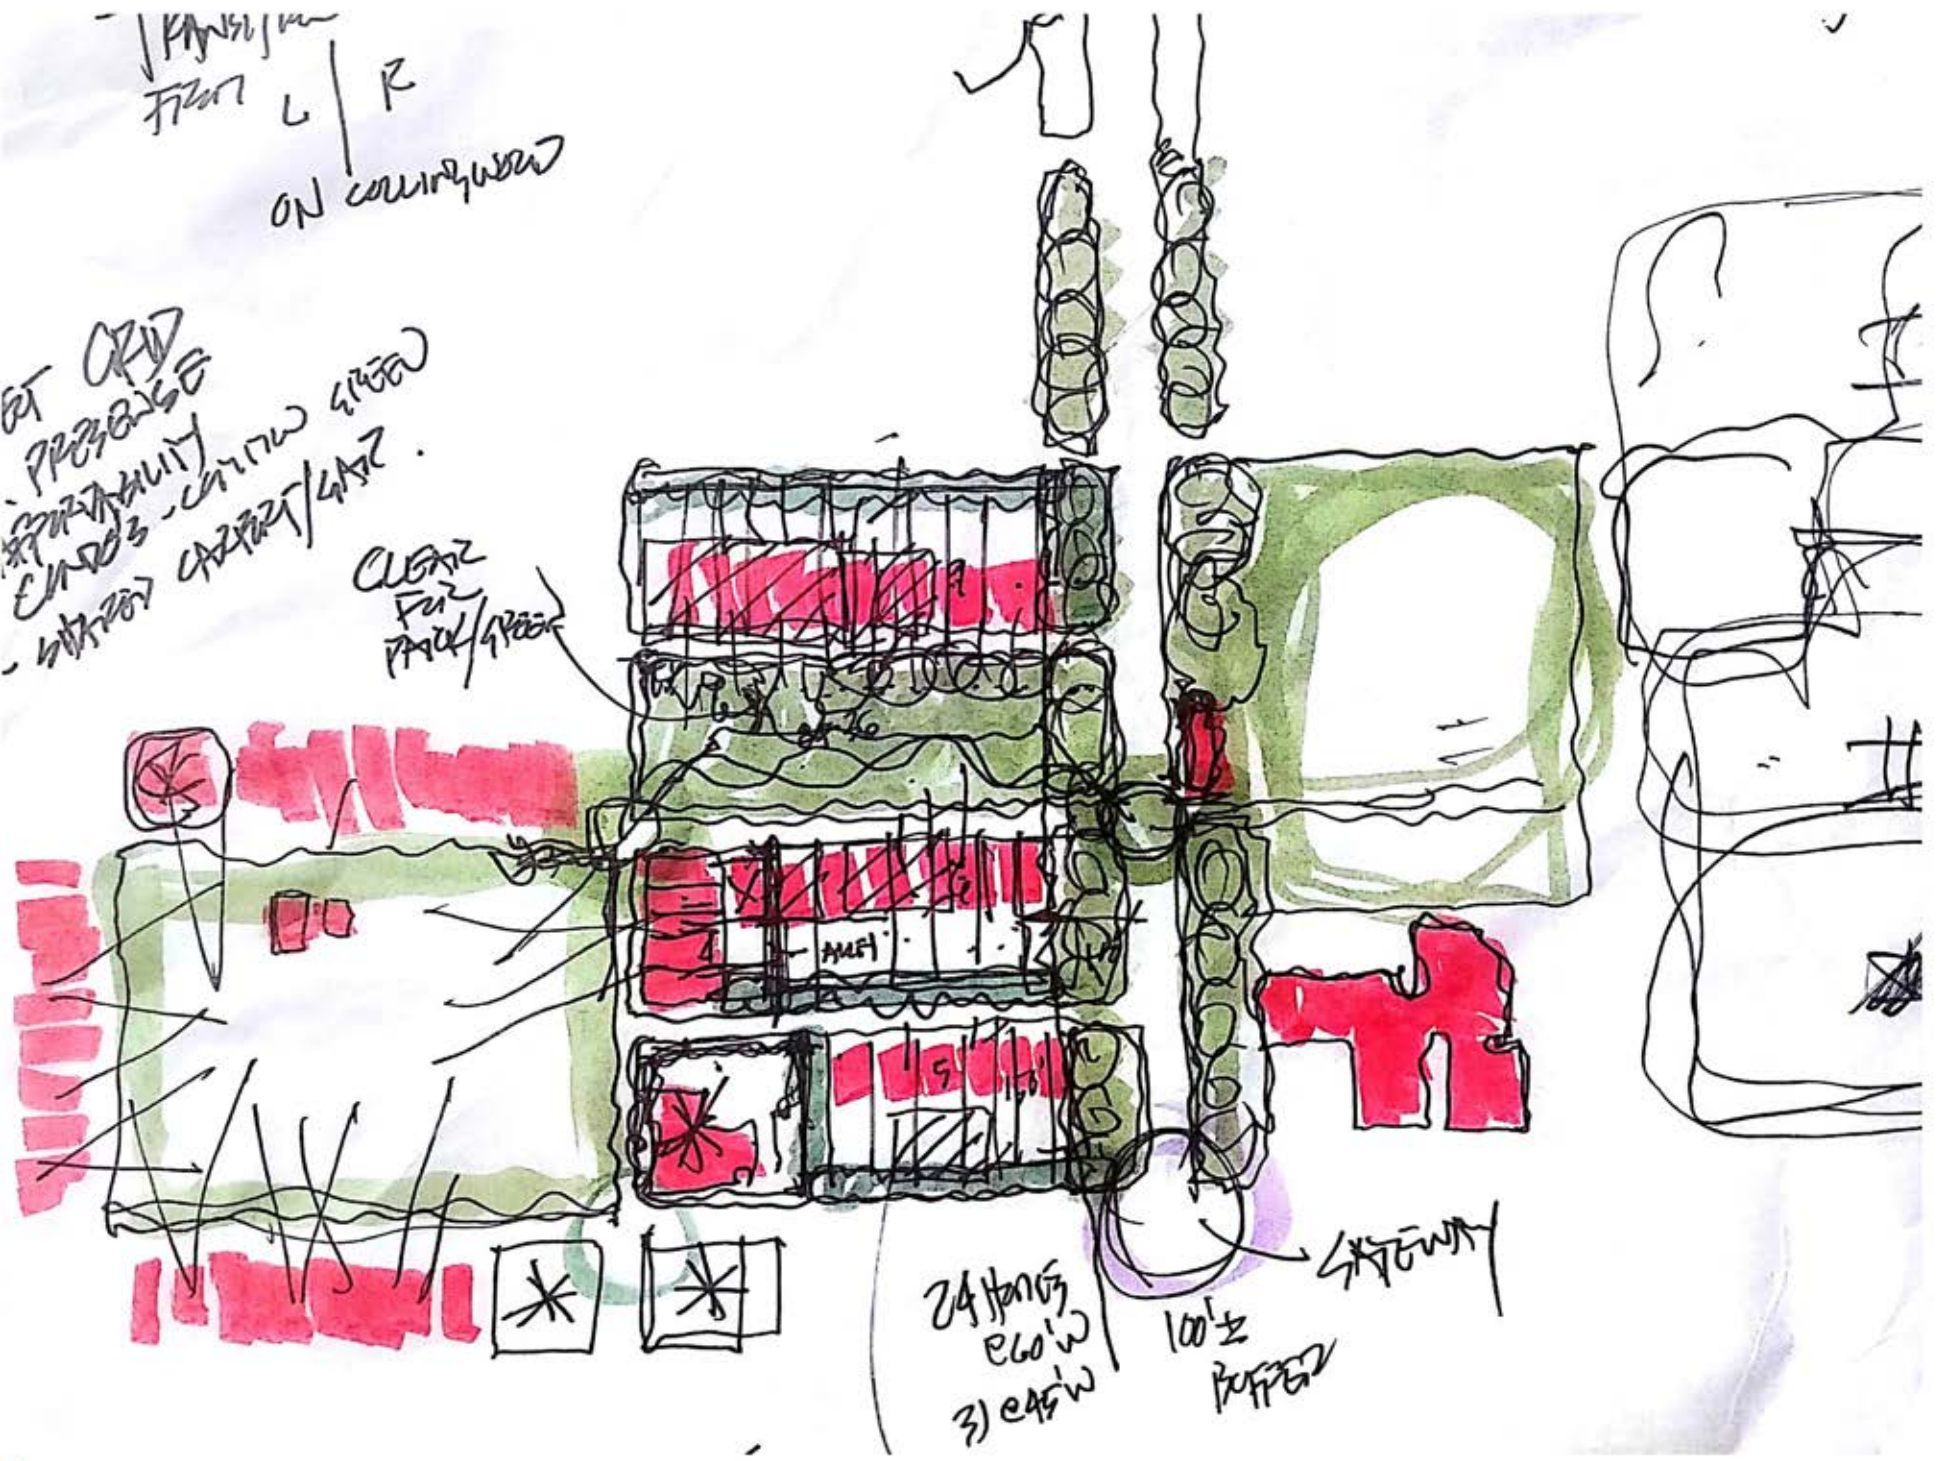 TRANSITION
FROM L | R
ON COLLINGWOOD
GRID
PRESENSE
AFFORDABILITY
CONDOS - COMMON GREEN
- SHARED CARPORT/GAR.
CLEAR
FOR
PARK/GREEN
ALLEY
5
24 HOMES
@60'W
31 @45'W
100'±
BUFFER
GATEWAY